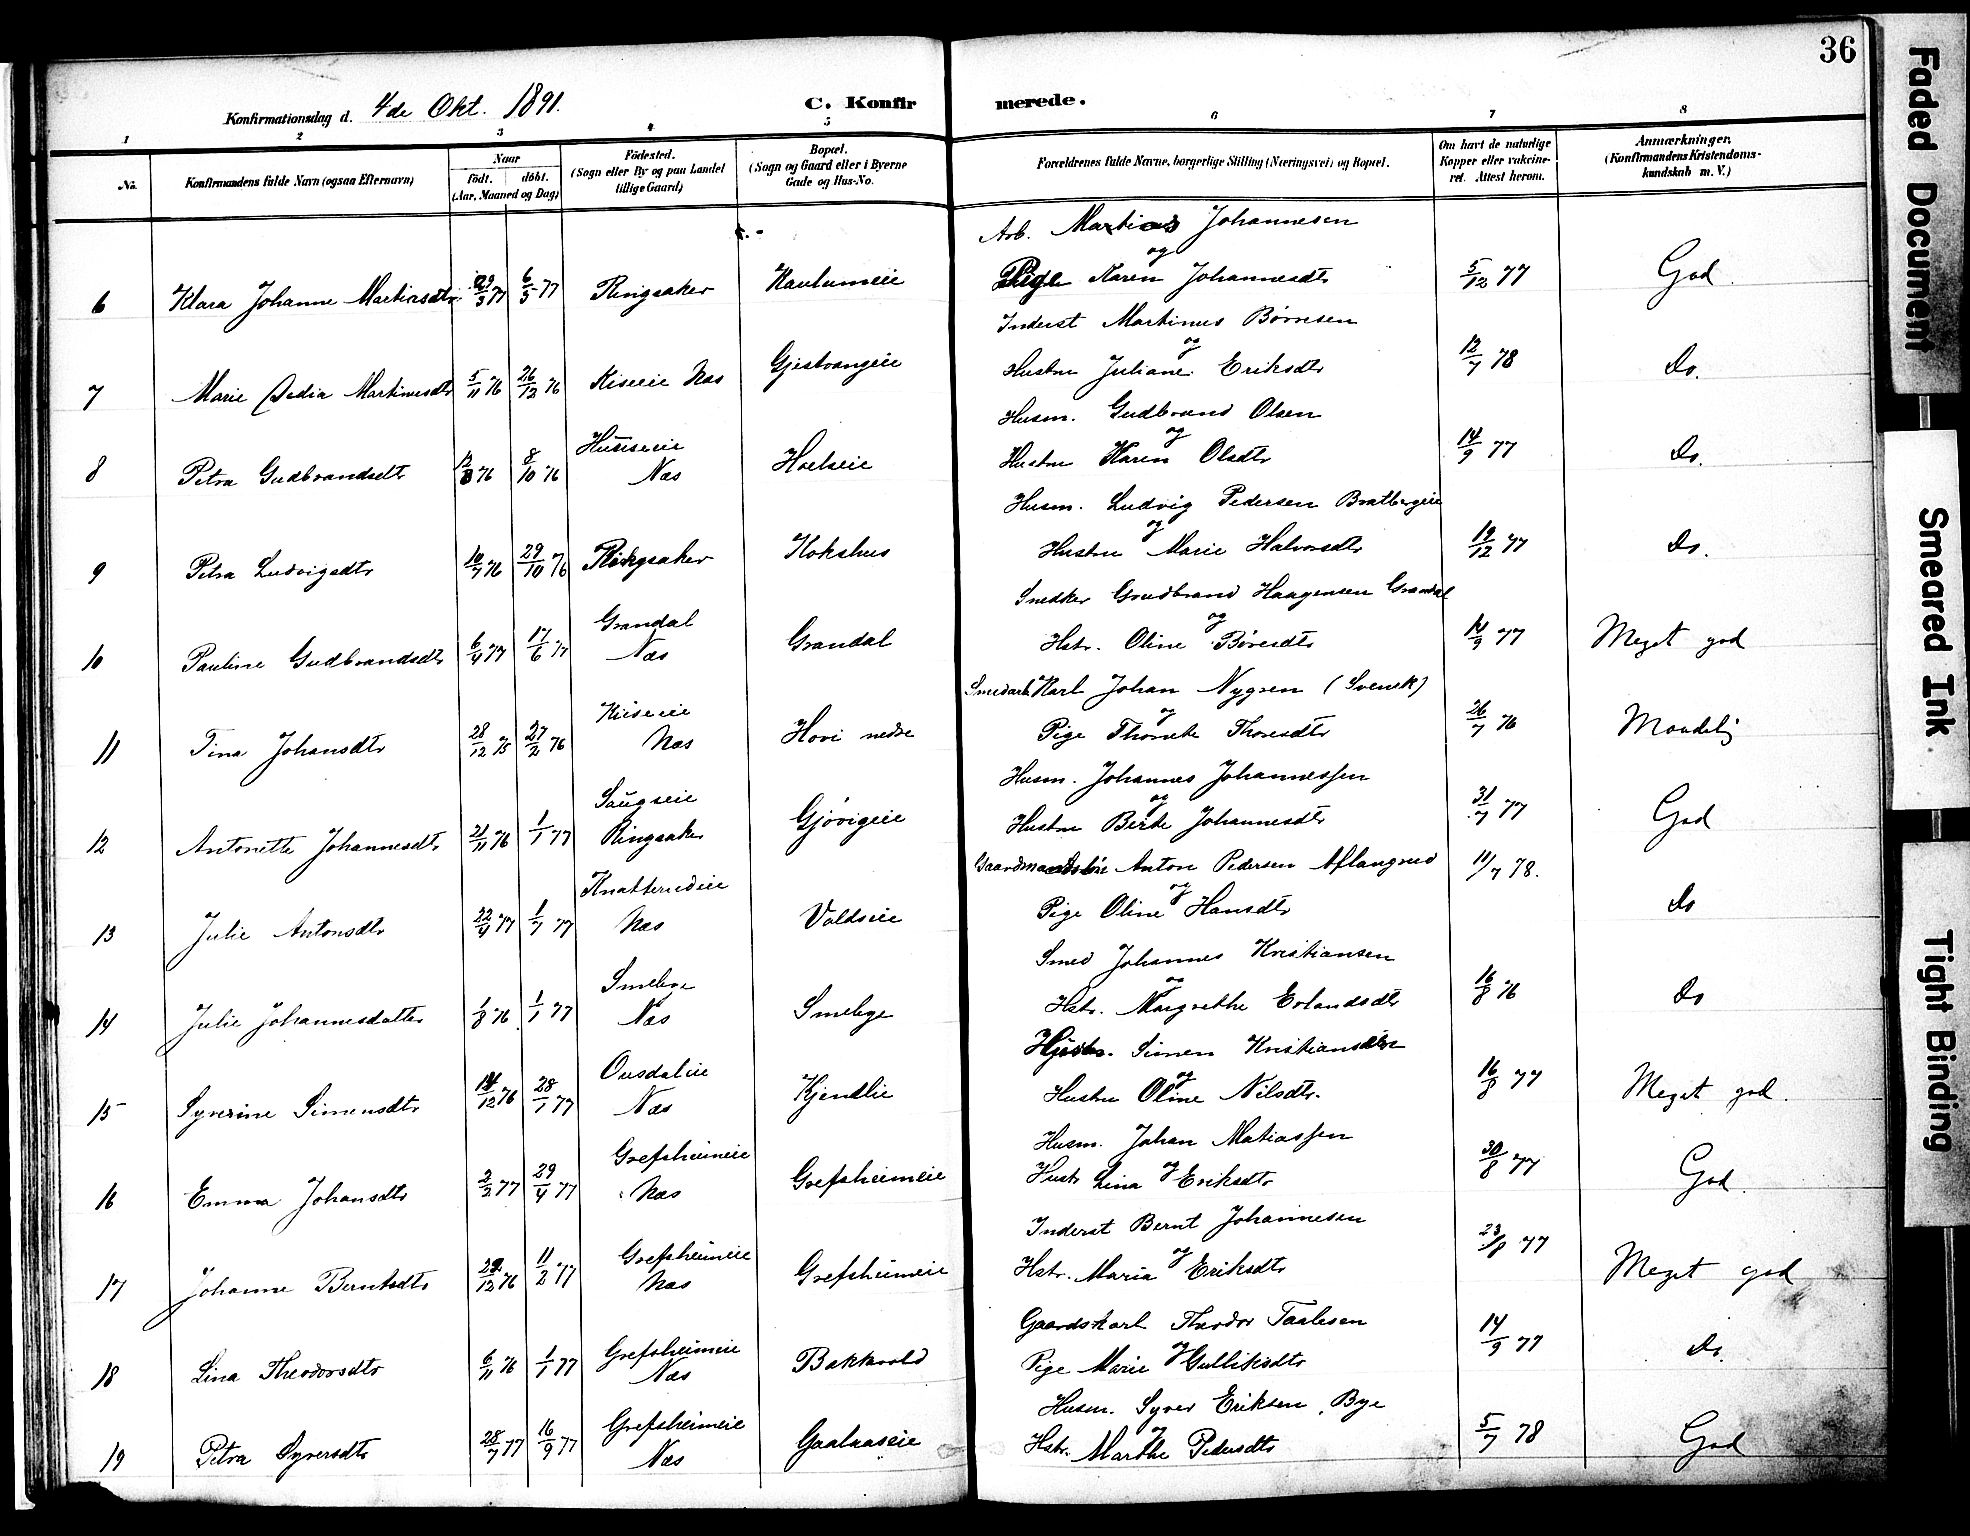 36
Konfirmationsdag d. 4de Okt. 1891.
C. Konfirmerede.
1 2 3 4 5 6 7 8
No.
Konfirmandens fulde Navn (ogsaa Efternavn)
Naar
født. døbt.
(Aar, Maaned og Dag)
Fødested.
(Sogn eller By og paa Landet
tillige Gaard)
Bopæl.
(Sogn og Gaard eller i Byerne
Gade og Hus-No.
Forældrenes fulde Navne, borgerlige Stilling (Næringsvei) og Bopæl.
Om havt de naturlige
Kopper eller vakcine-
ret. Attest herom.
Anmærkninger.
(Konfirmandens Kristendoms-
kundskab m. V.)
Arb. Martias Johannesen
og
6 Klara Johanne Martinsdtr. 29/3 77 6/5 77 Ringsaker Kaulumeie Pige Karen Johannesdtr 5/12 77 God.
Inderst Martinus Børresen
og
7 Marie Sedia Martinusdtr 5/11 76 26/12 76 Kiseeie Næs Gjestvangeie Hustru Juliane Eriksdtr 12/7 78 Do.
Husm. Gudbrand Olsen
og
Huuseeie
8 Petra Gudbrandsdtr 12/8 76 8/10 76 Næs Hoelseie Hustru Karen Olsdtr 14/9 77 Do.
Husm. Ludvig Pedersen Bratbergeie
og
9 Petra Ludvigsdtr 10/7 76 29/10 76 Ringsaker Kokshus Hustru Marie Halvorsdtr 19/12 77 Do.
Snedker Gudbrand Haagensen Grandal
Grandal og
10 Pauline Gudbrandsdtr 6/4 77 17/6 77 Næs Grandal Hstr. Oline Børesdtr 14/9 77 Meget god
Smedarb. Karl Johan Nygren (Svensk)
Kiiseeie og
11 Tina Johansdtr 28/12 75 27/2 76 Næs Hovi nedre Pige Thorine Thoresdtr 26/7 76 Maadelig
Husm. Johannes Johannessen
Saugseie og
12 Antonette Johannesdtr 21/11 76 1/1 77 Ringsaker Gjøvigeie Hustru Berte Johannesdtr 31/7 77 God
Gaardmandssøn Anton Pedersen Aflangrud 11/7 78.
Knatterudeie og
13 Julie Antonsdtr 22/4 77 1/7 77 Næs Voldseie Pige Oline Hansdtr Do
Smed Johannes Kristiansen
Smeby og
14 Julie Johannesdatter 1/8 76 1/1 77 Næs Smebye Hstr. Margrethe Erlandsdtr 16/8 76 Do
Simen Kristiansen
Ousdaleie og
15 Syverine Simensdtr 14/12 76 28/1 77 Næs Kjendlie Hustru Oline Nilsdtr. 16/8 77 Meget god.
Husm. Johan Matiassen
Grefsheimeie og
16 Emma Johansdtr 2/2 77 29/4 77 Næs Grefsheimeie Hustr Lina Eriksdtr 30/8 77 God.
Inderst Bernt Johannesen
Grefsheimeie og
17 Johanne Berntsdtr 29/12 76 11/2 77 Næs Grefsheimeie Hstr. Maria Eriksdtr 23/8 77 Meget god
Gaardskarl Theodor Taalesen
Grefsheimeie og
18 Lina Theodorsdtr 6/11 76 1/1 77 Næs Bakkvold Pige Marie Gulliksdtr 14/9 77 Do.
Husm. Syver Eriksen, Bye
Grefsheimeie og
19 Petra Syversdtr 28/7 77 16/9 77 Næs Gaalaaseie Hstr. Marthe Pedersdtr 5/7 78 God
Faded Document
Smeared Ink
Tight Binding